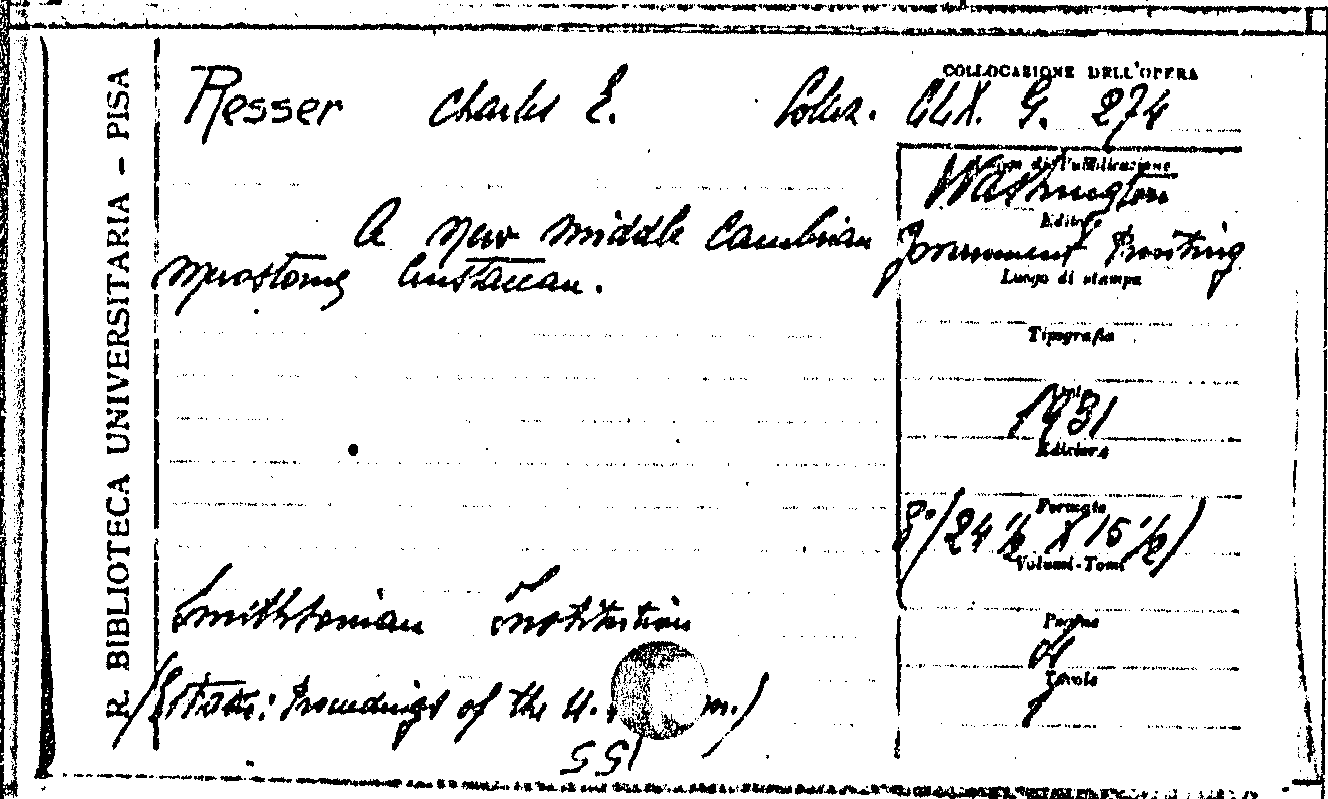 R. BIBLIOTECA UNIVERSITARIA - PISA
COLLOCAZIONE DELL'OPERA
Resser Charles E. Collez. CLX. G. 274
Washington
Editore
A new middle Cambrian
Government Printing
merostome Crustacean.
Luogo di stampa
Tipografia
1931
Edizione
Formato
8° (24 ½ X 15 ½)
Volumi-Tomi
Smithsonian Institution
Pagine
4
Tavole
(Estratto: Proceedings of the U. m.)
55